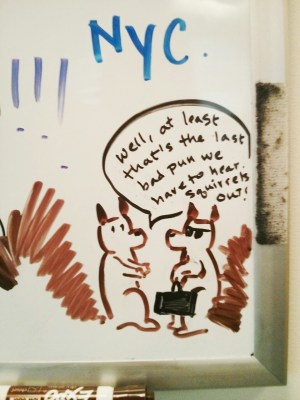 NYC.
!!!
Well, at least
that's the last
bad pun we
have to hear.
squirrels
out!